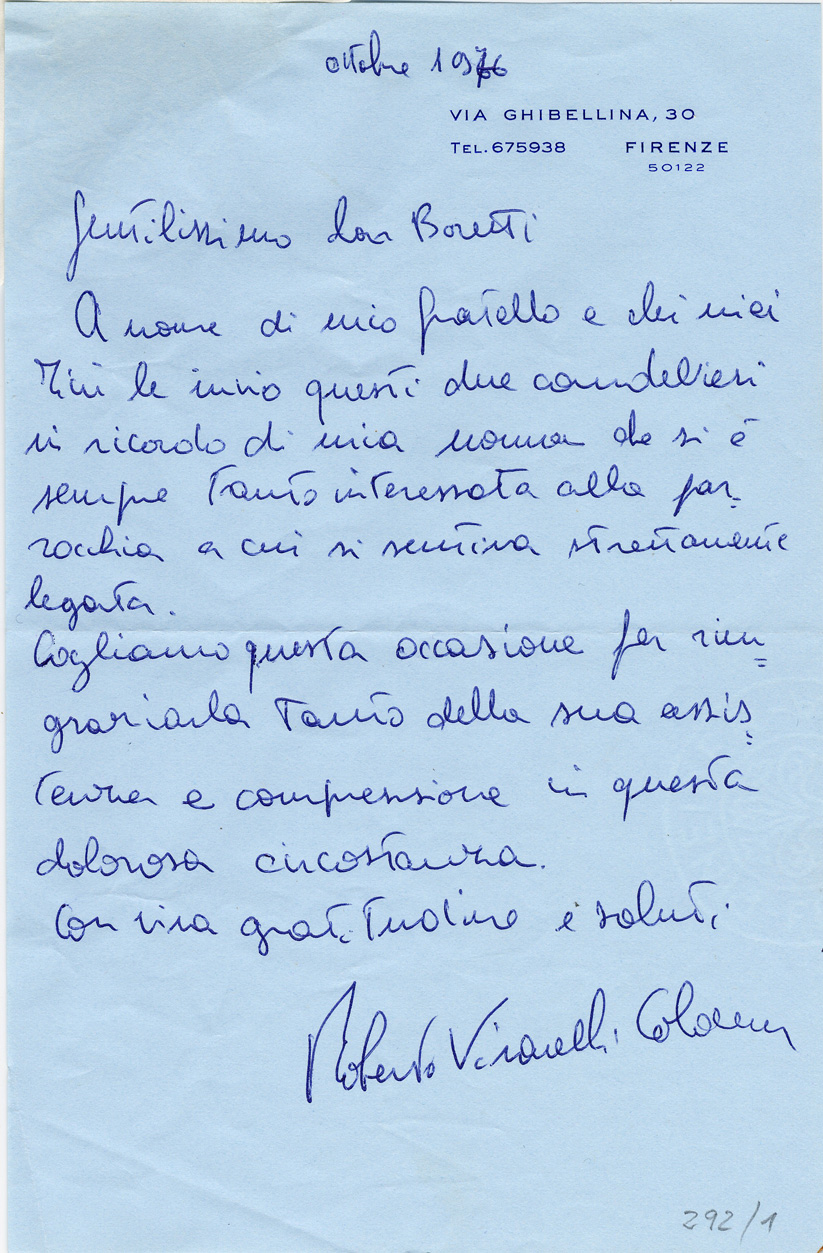 ottobre 1976
VIA GHIBELLINA, 30
TEL. 675938 FIRENZE
50122
Gentilissimo don Boretti
A nome di mio fratello e dei miei
zii le invio questi due candelieri
in ricordo di mia nonna che si è
sempre tanto interessata alla par-
rocchia a cui si sentiva strettamente
legata.
Cogliamo questa occasione per rin=
graziarla tanto della sua assis=
tenza e comprensione in questa
dolorosa circostanza.
Con viva gratitudine e saluti
Roberto
292/1